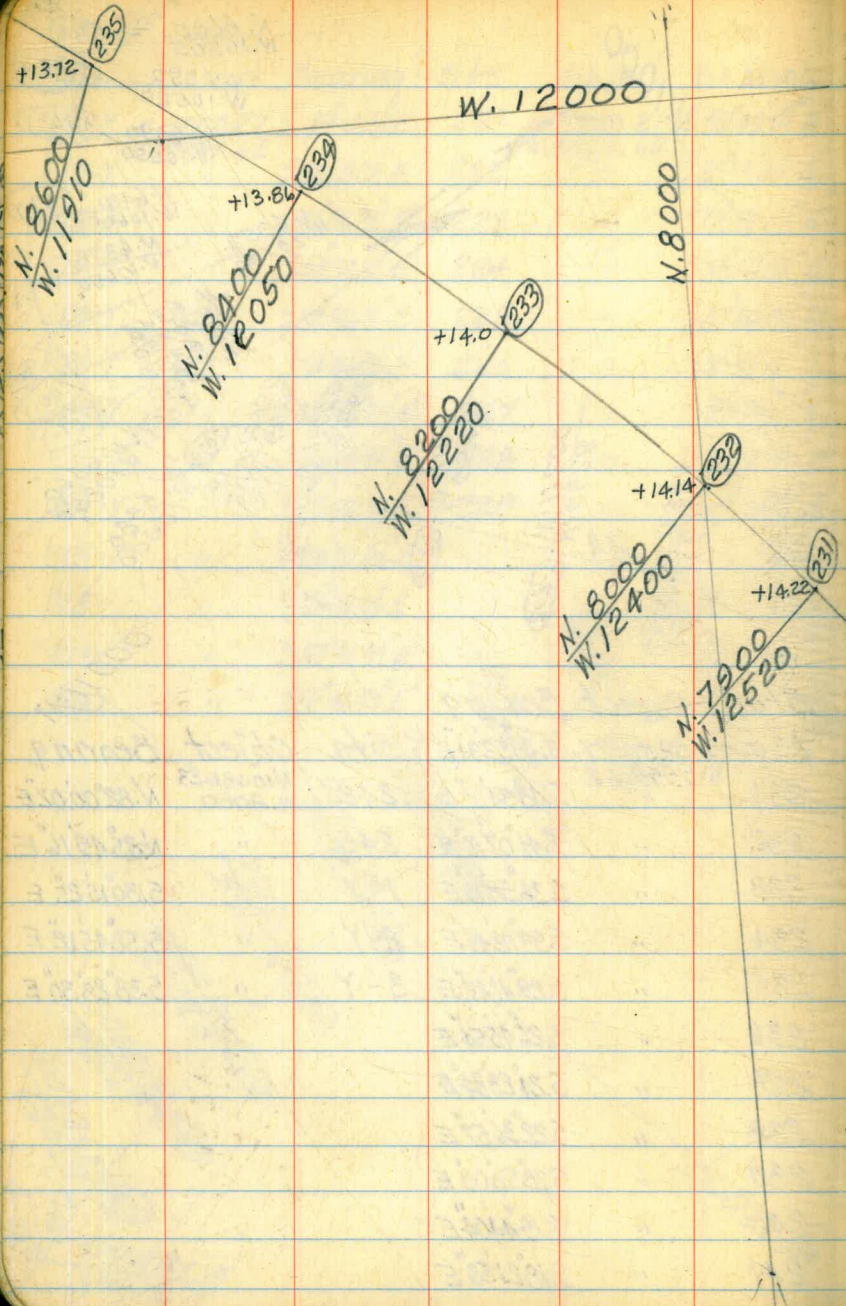 235
+13.72
W. 12000
N. 8600
W. 11910
234
+13.86
N. 8000
N. 8400
W. 12050
233
+14.0
N. 8200
W. 12220
232
+14.14
N. 8000
W. 12400
231
+14.22
N. 7900
W. 12520